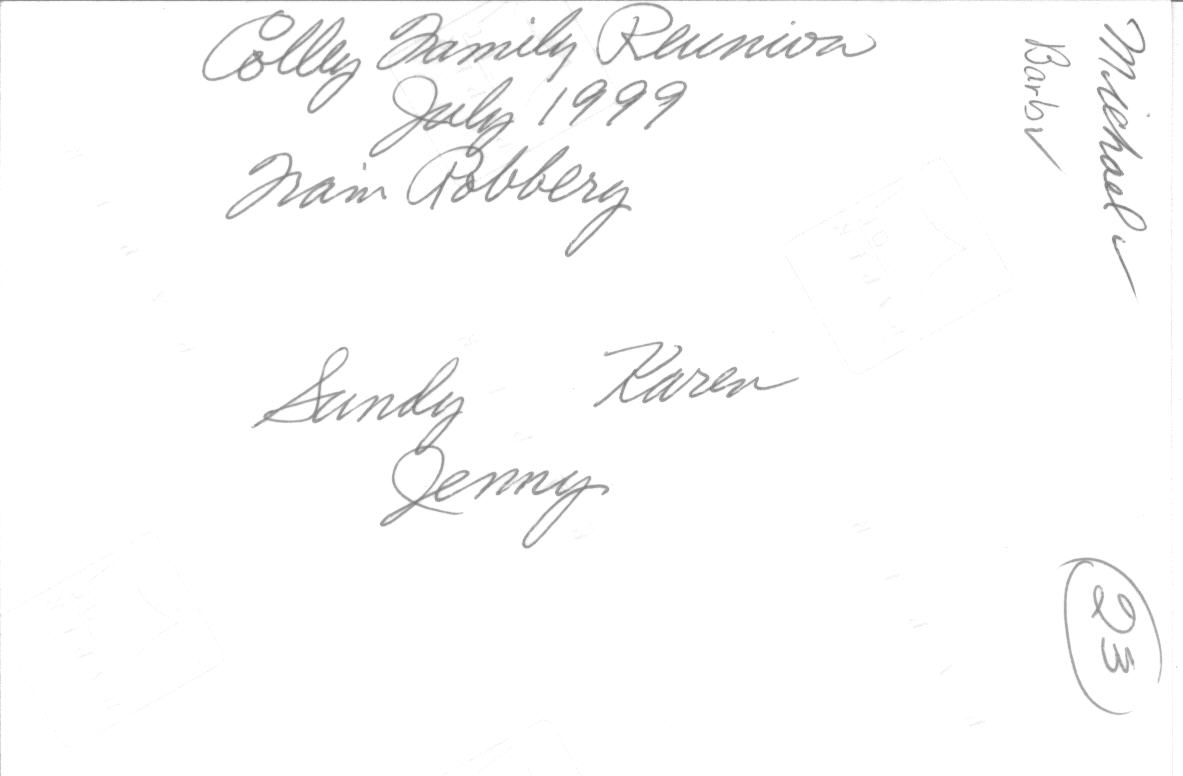 Colley Family Reunion
July 1999
Train Robbery
Sandy Karen
Jenny
Michael ✓
Barb ✓
23